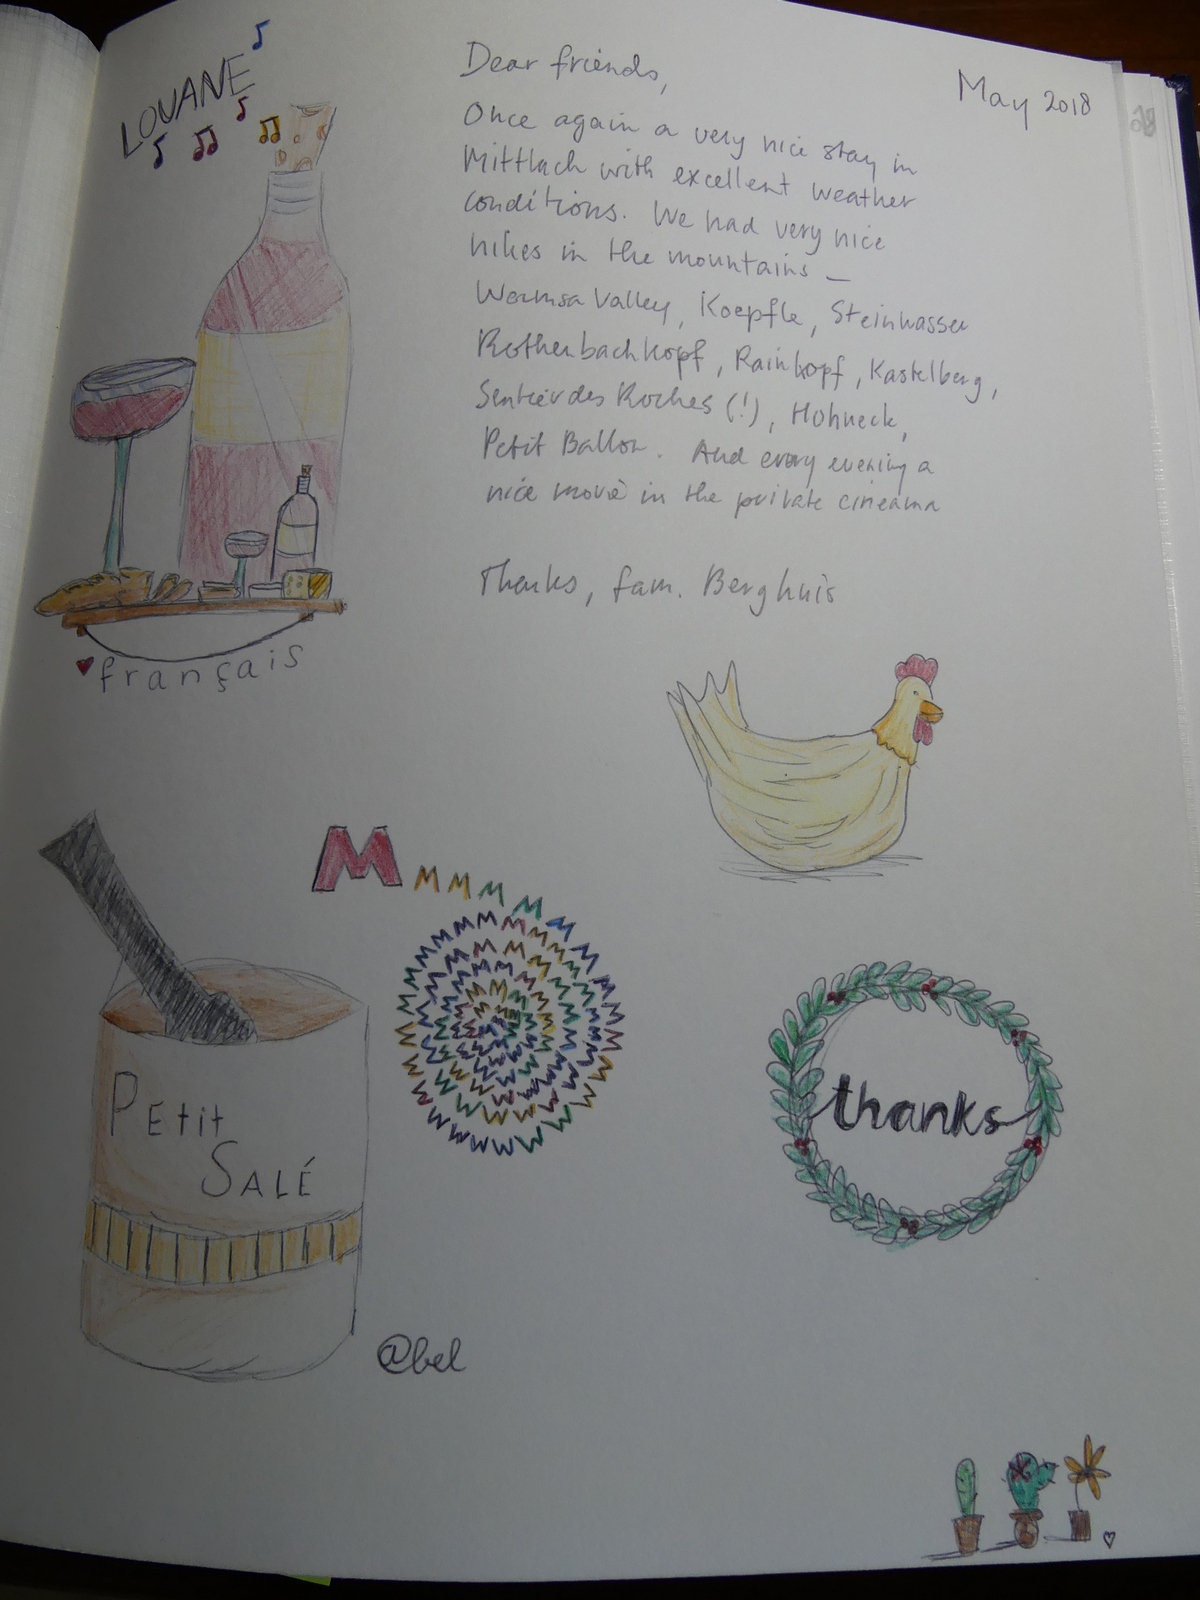 LOUANE
May 2018
28
Dear friends,
Once again a very nice stay in
Mittlach with excellent weather
conditions. We had very nice
hikes in the mountains –
Wormsa Valley, Koepfle, Steinwasser
Rothenbachkopf, Rainkopf, Kastelberg,
Sentier des Roches (!), Hohneck,
Petit Ballon. And every evening a
nice movie in the private cineama
Thanks, fam. Berghuis
♥ français
M M M M M
PEtit
SALÉ
thanks
@bel